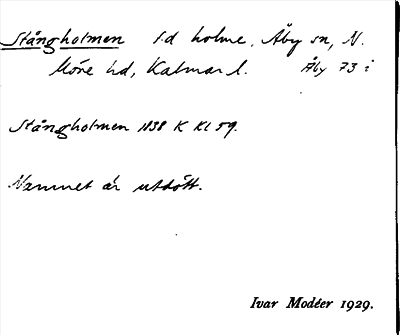 Stångholmen f.d holme, Åby sn, N.
Möre hd, Kalmar l. Åby 73 i
Stångholmen 1838 K Kl 59.
Namnet är utdött.
Ivar Modéer 1929.